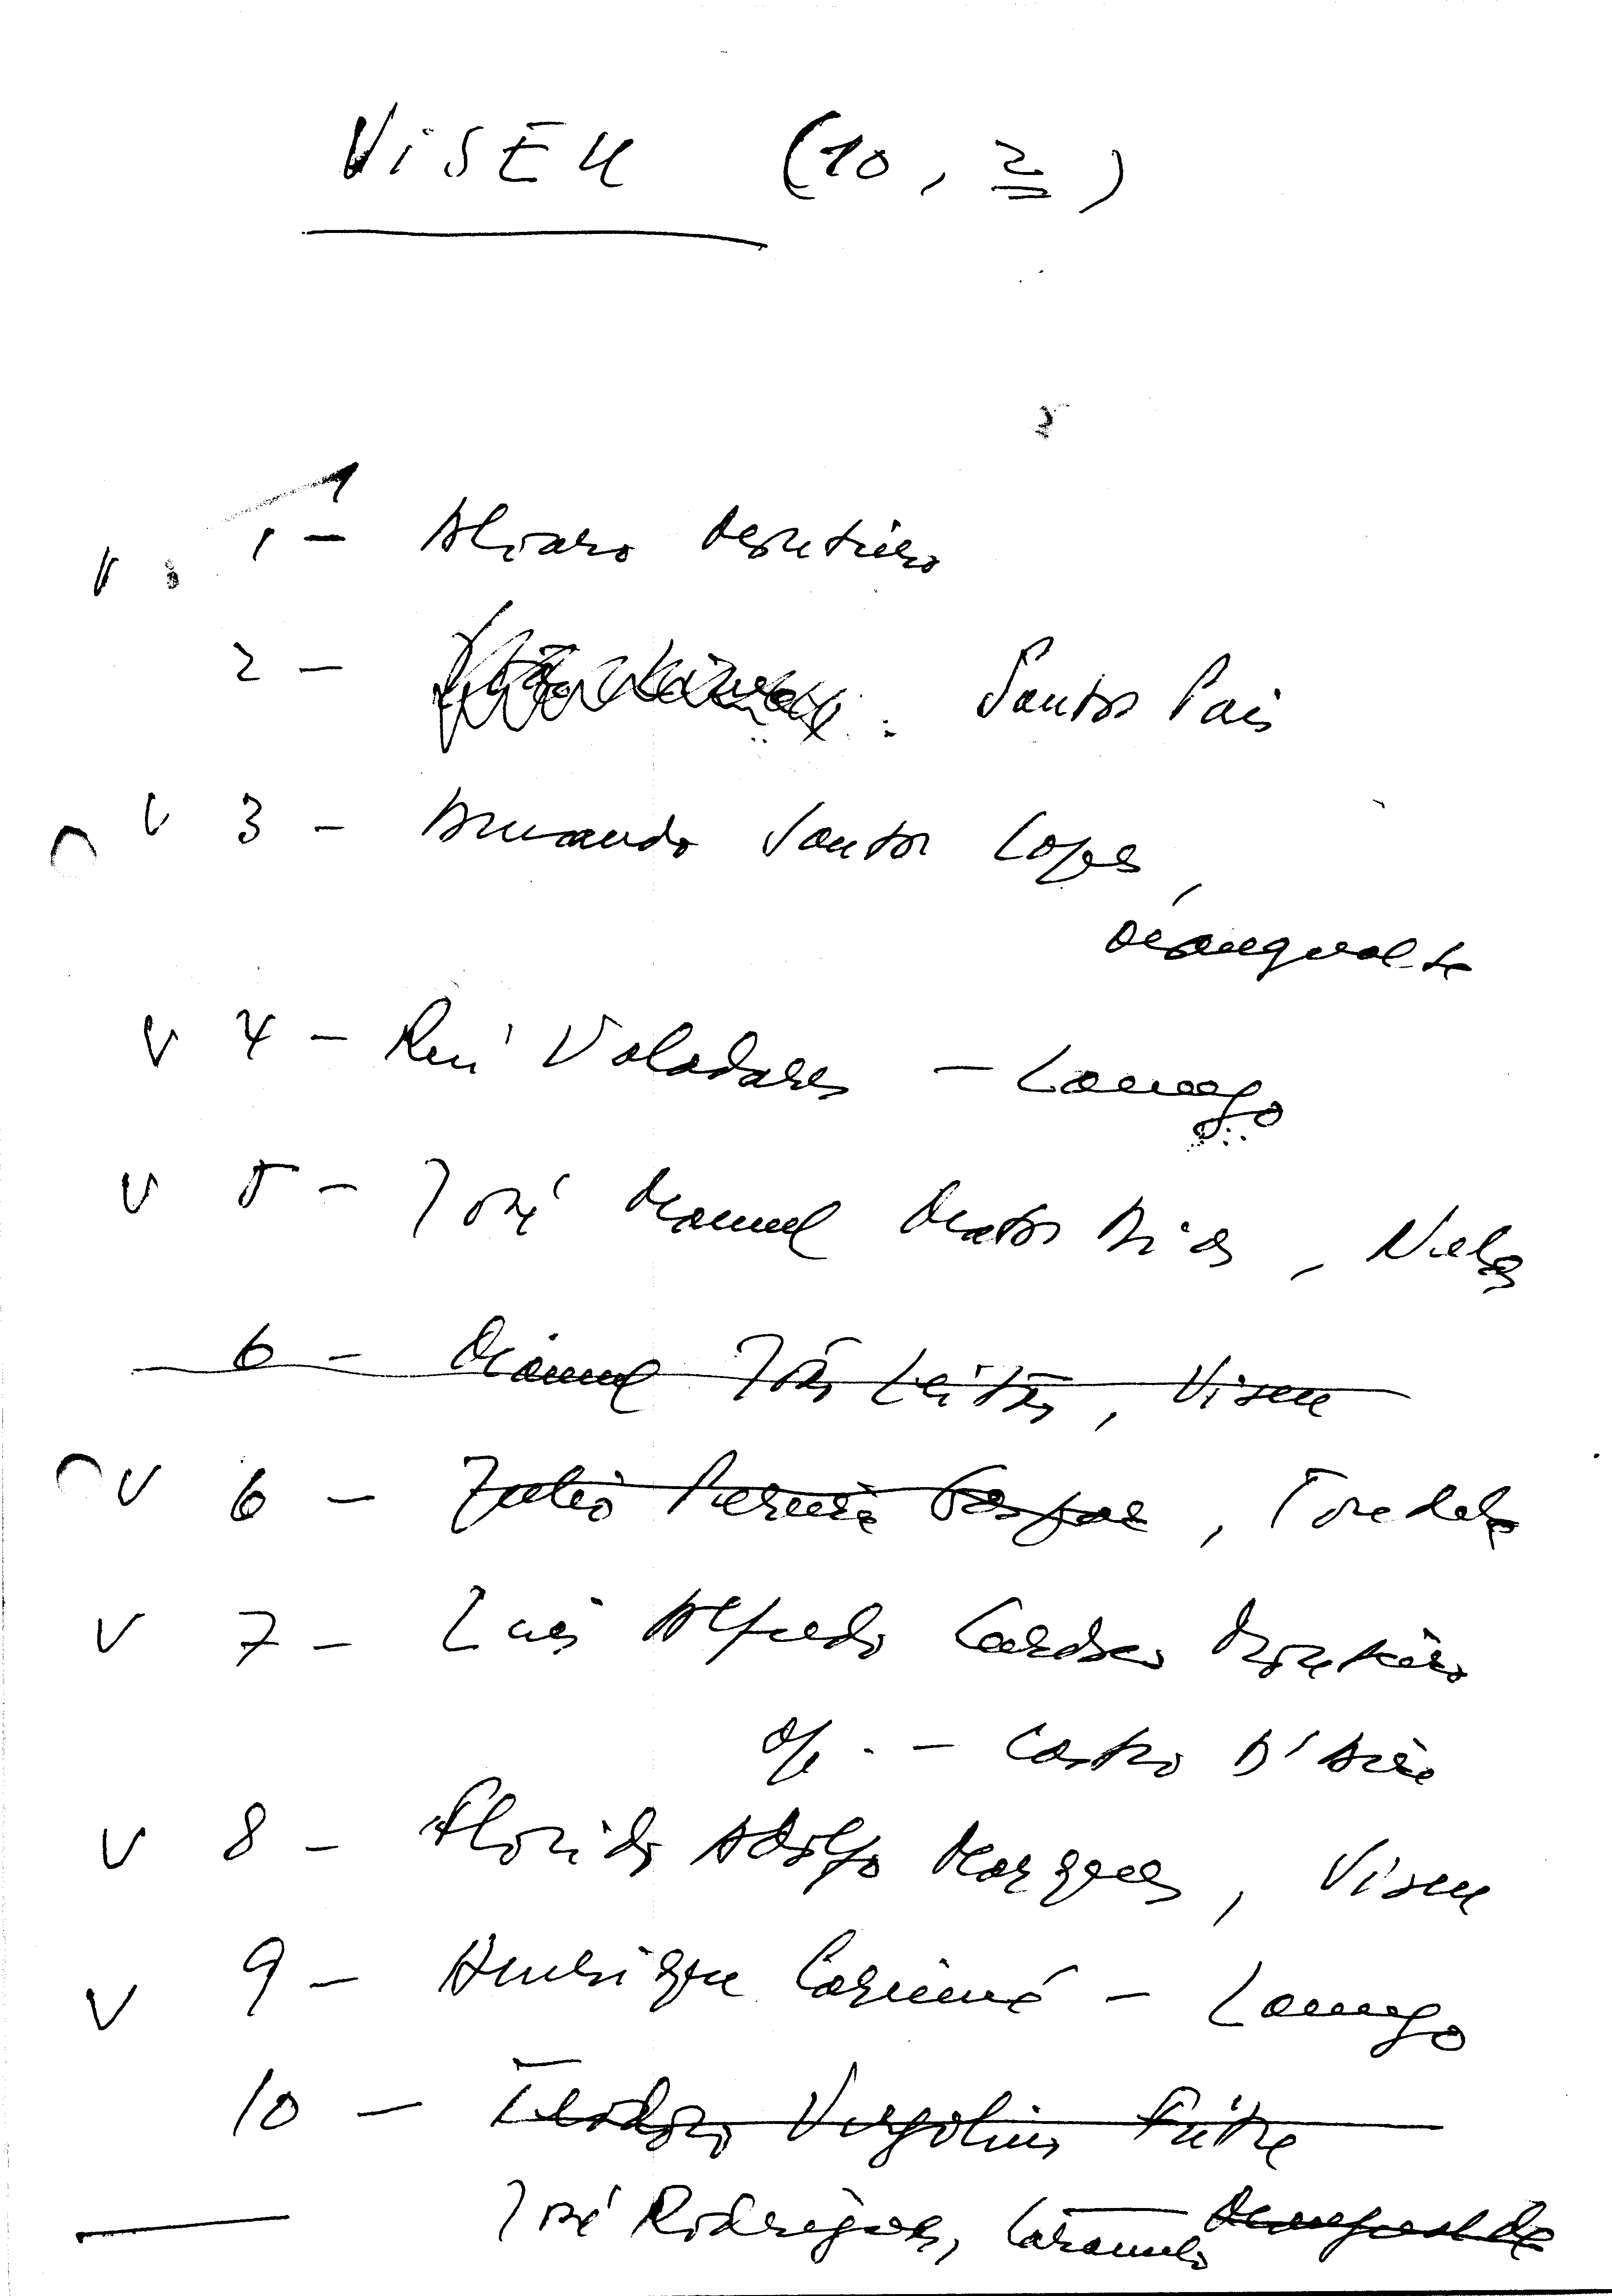 VISEU (10, 2)
V 1 - Alvaro Monteiro
2 - Santos Pais
V 3 - Armando Santos Lopes,
Mangualde
V 4 - Rui Valadares - Lamego
V 5 - José Manuel Matos Dias, Nelas
6 - Manuel João Leitão, Viseu
V 6 - Julio Pereira Gaspar, Tondela
V 7 - Luis Alfredo Cardoso Monteiro
op. - Castro D'Aire
V 8 - Florido Adolfo Marques, Viseu
V 9 - Henrique - Lamego
10 - Teodoro Virgolino Freire
José Rodrigues, Caramulo Mangualde